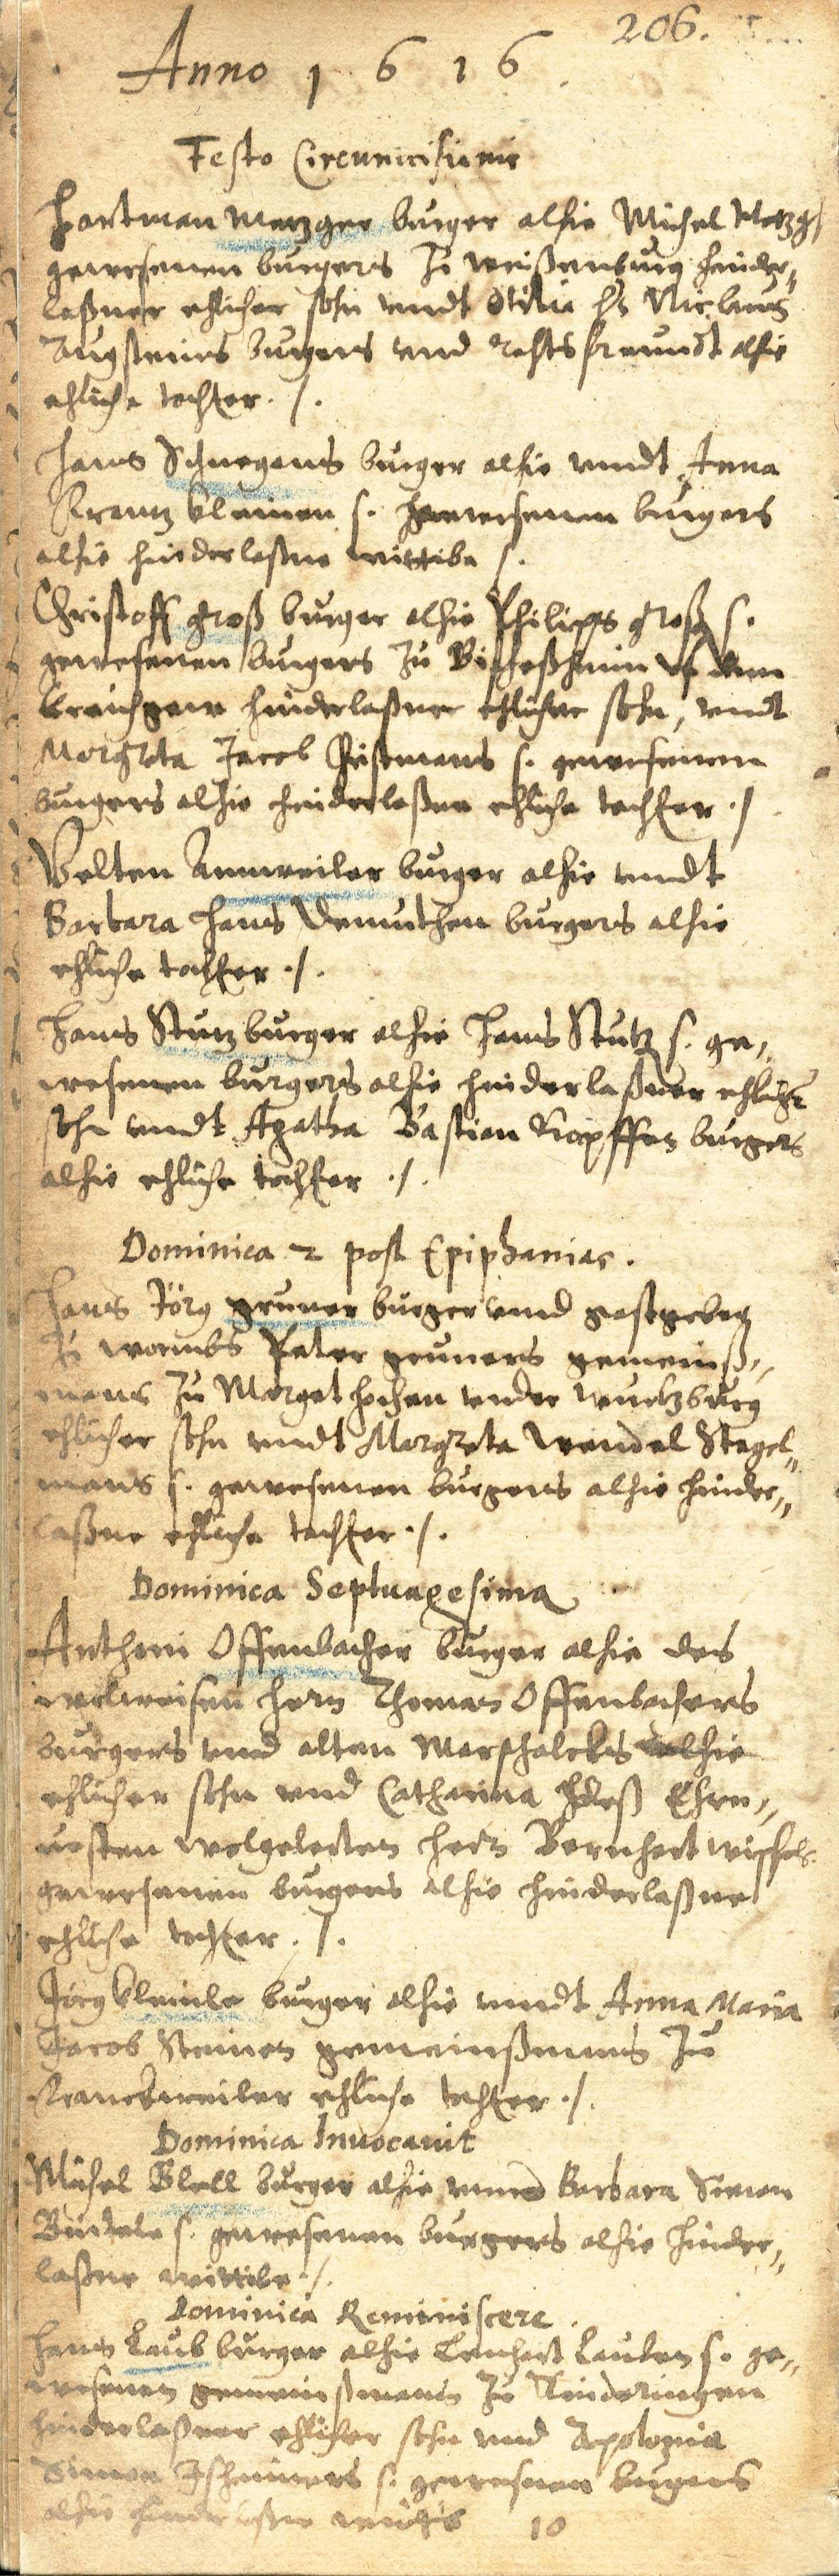 206.
Anno 1 6 1 6.
Festo Circumcisionis
Hartman Metzger burger alhie Michel Metzg
gewesenen burgers zu Weißenburg hinder„
laßner ehlicher sohn undt Otilia Niclaus
burgers und alhie
ehliche tochter ./.
Hans burger alhie undt Anna
s. gewesenen burgers
alhie hinderlaßne wittibe ./.
Christoff groß burger alhie Philipps groß s.
gewesenen burgers zu uf dem
Kreichgew hinderlaßner ehlicher sohn, undt
Margreta Jacob s. gewesenen
burgers alhie hinderlaßne ehliche tochter ./
Velten Annweiler burger alhie undt
Barbara Hans Demuthen burgers alhie
ehliche tochter ./.
Hans Stutz burger alhie Hans Stutz s. ge„
wesenen burgers alhie hinderlaßner ehlicher
sohn undt Agatha Bastian burgers
alhie ehliche tochter ./.
Dominica 2 post Epiphanias.
Hans Jörg gruner burger und gastgeber
zu Wormbs Peter gruners gemeinß„
mans zu Margetshochen under Wurtzburg
ehlicher sohn undt Margreta Wendel Stegel„
mans s. gewesenen burgers alhie hinder„
laßne ehliche tochter ./.
Dominica Septuagesima
Anthoni Offenbacher burger alhie des
wolweisen hern Thoman Offenbachers
burgers und alten Marschalcks alhie
ehlicher sohn und Catharina deß Ehrn„
vesten wolgelerten hern Bernhart
gewesenen burgers alhie hinderlaßne
ehliche tochter ./.
Jörg burger alhie undt Anna Maria
Jacob Steines gemeinßmans zu
Franckweiler ehliche tochter ./.
Dominica Invocavit
Michel Blell burger alhie unnd Barbara Simon
s. gewesenen burgers alhie hinder„
laßne wittibe ./.
Dominica Reminiscere.
Hans Laub burger alhie Lenhart Lauben s. ge„
wesenen gemeinßmans zu
hinderlaßner ehlicher sohn und Apolonia
Simon s. gewesenen burgers
alhie hinderlaßne
10